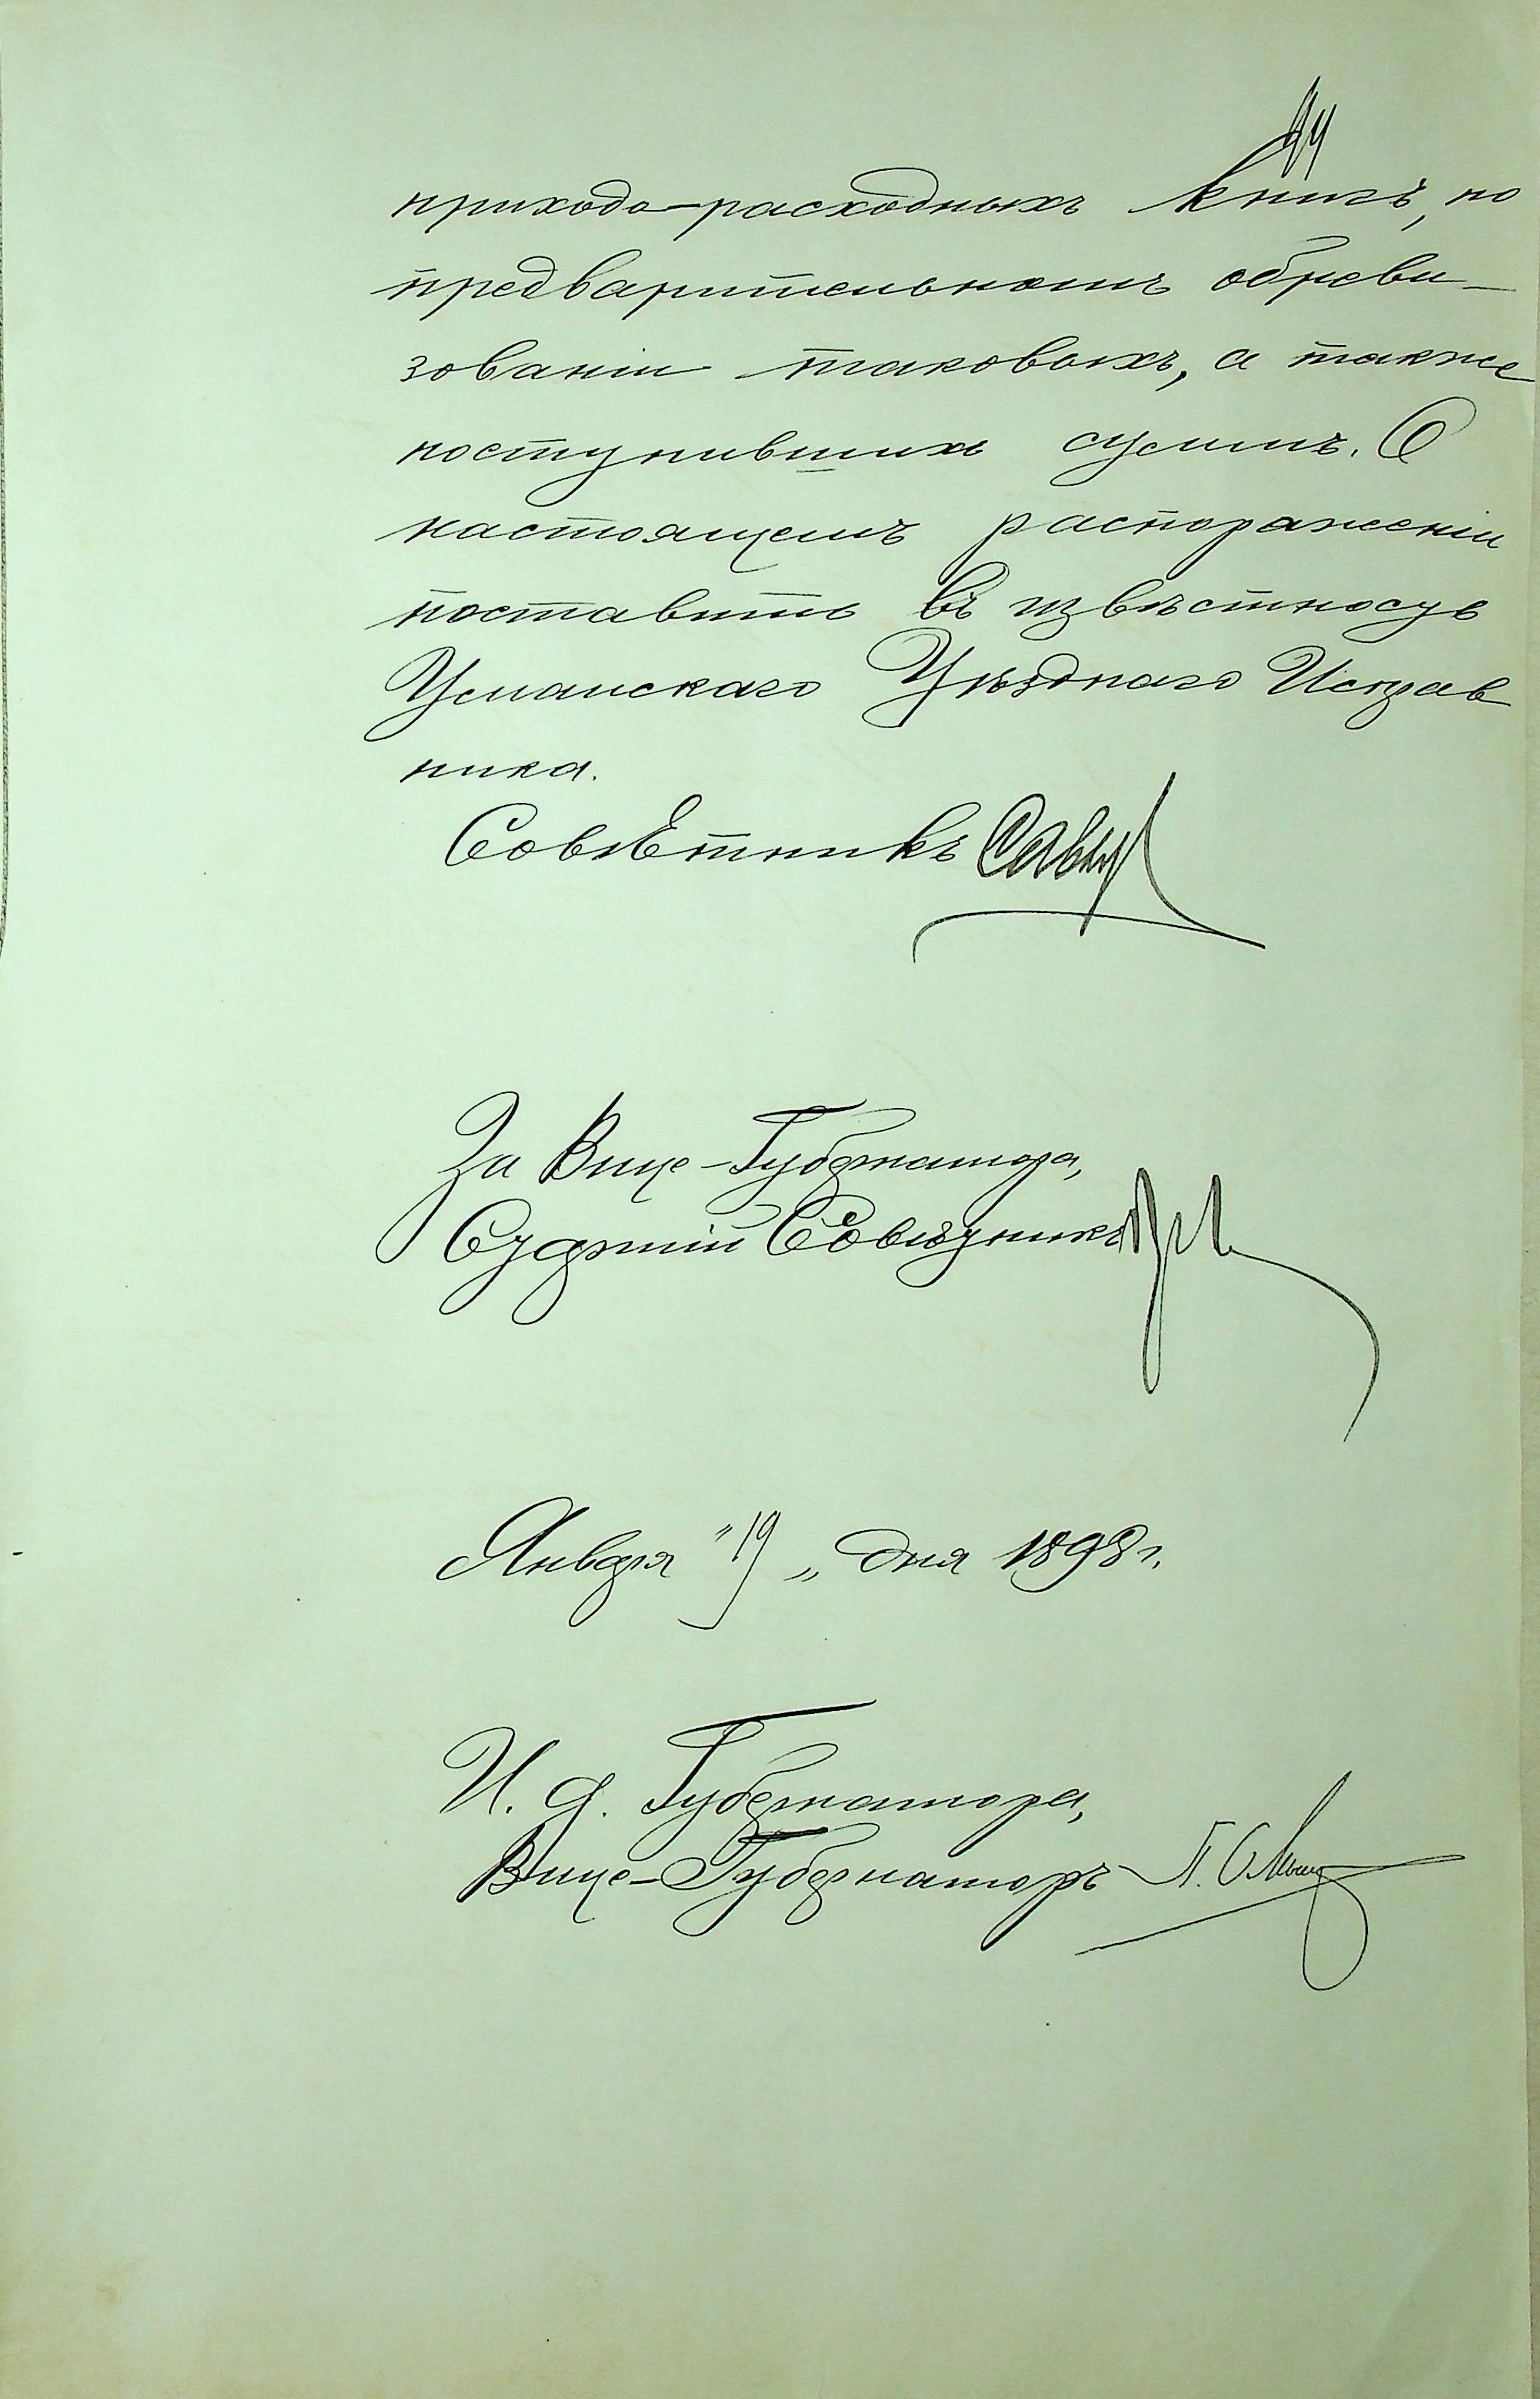 приходо-расходныхъ книгъ, по
предварительномъ обреви-
зованіи таковыхъ, а также
поступившихъ суммъ. О
настоящемъ распоряженіи
поставить въ извѣстность
Усманскаго Уѣзднаго Исправ
ника.
Совѣтникъ
За Вице-Губернатора,
Старшій Совѣтникъ
Января "19" дня 1898 г.
И. д. Губернатора,
Вице-Губернаторъ